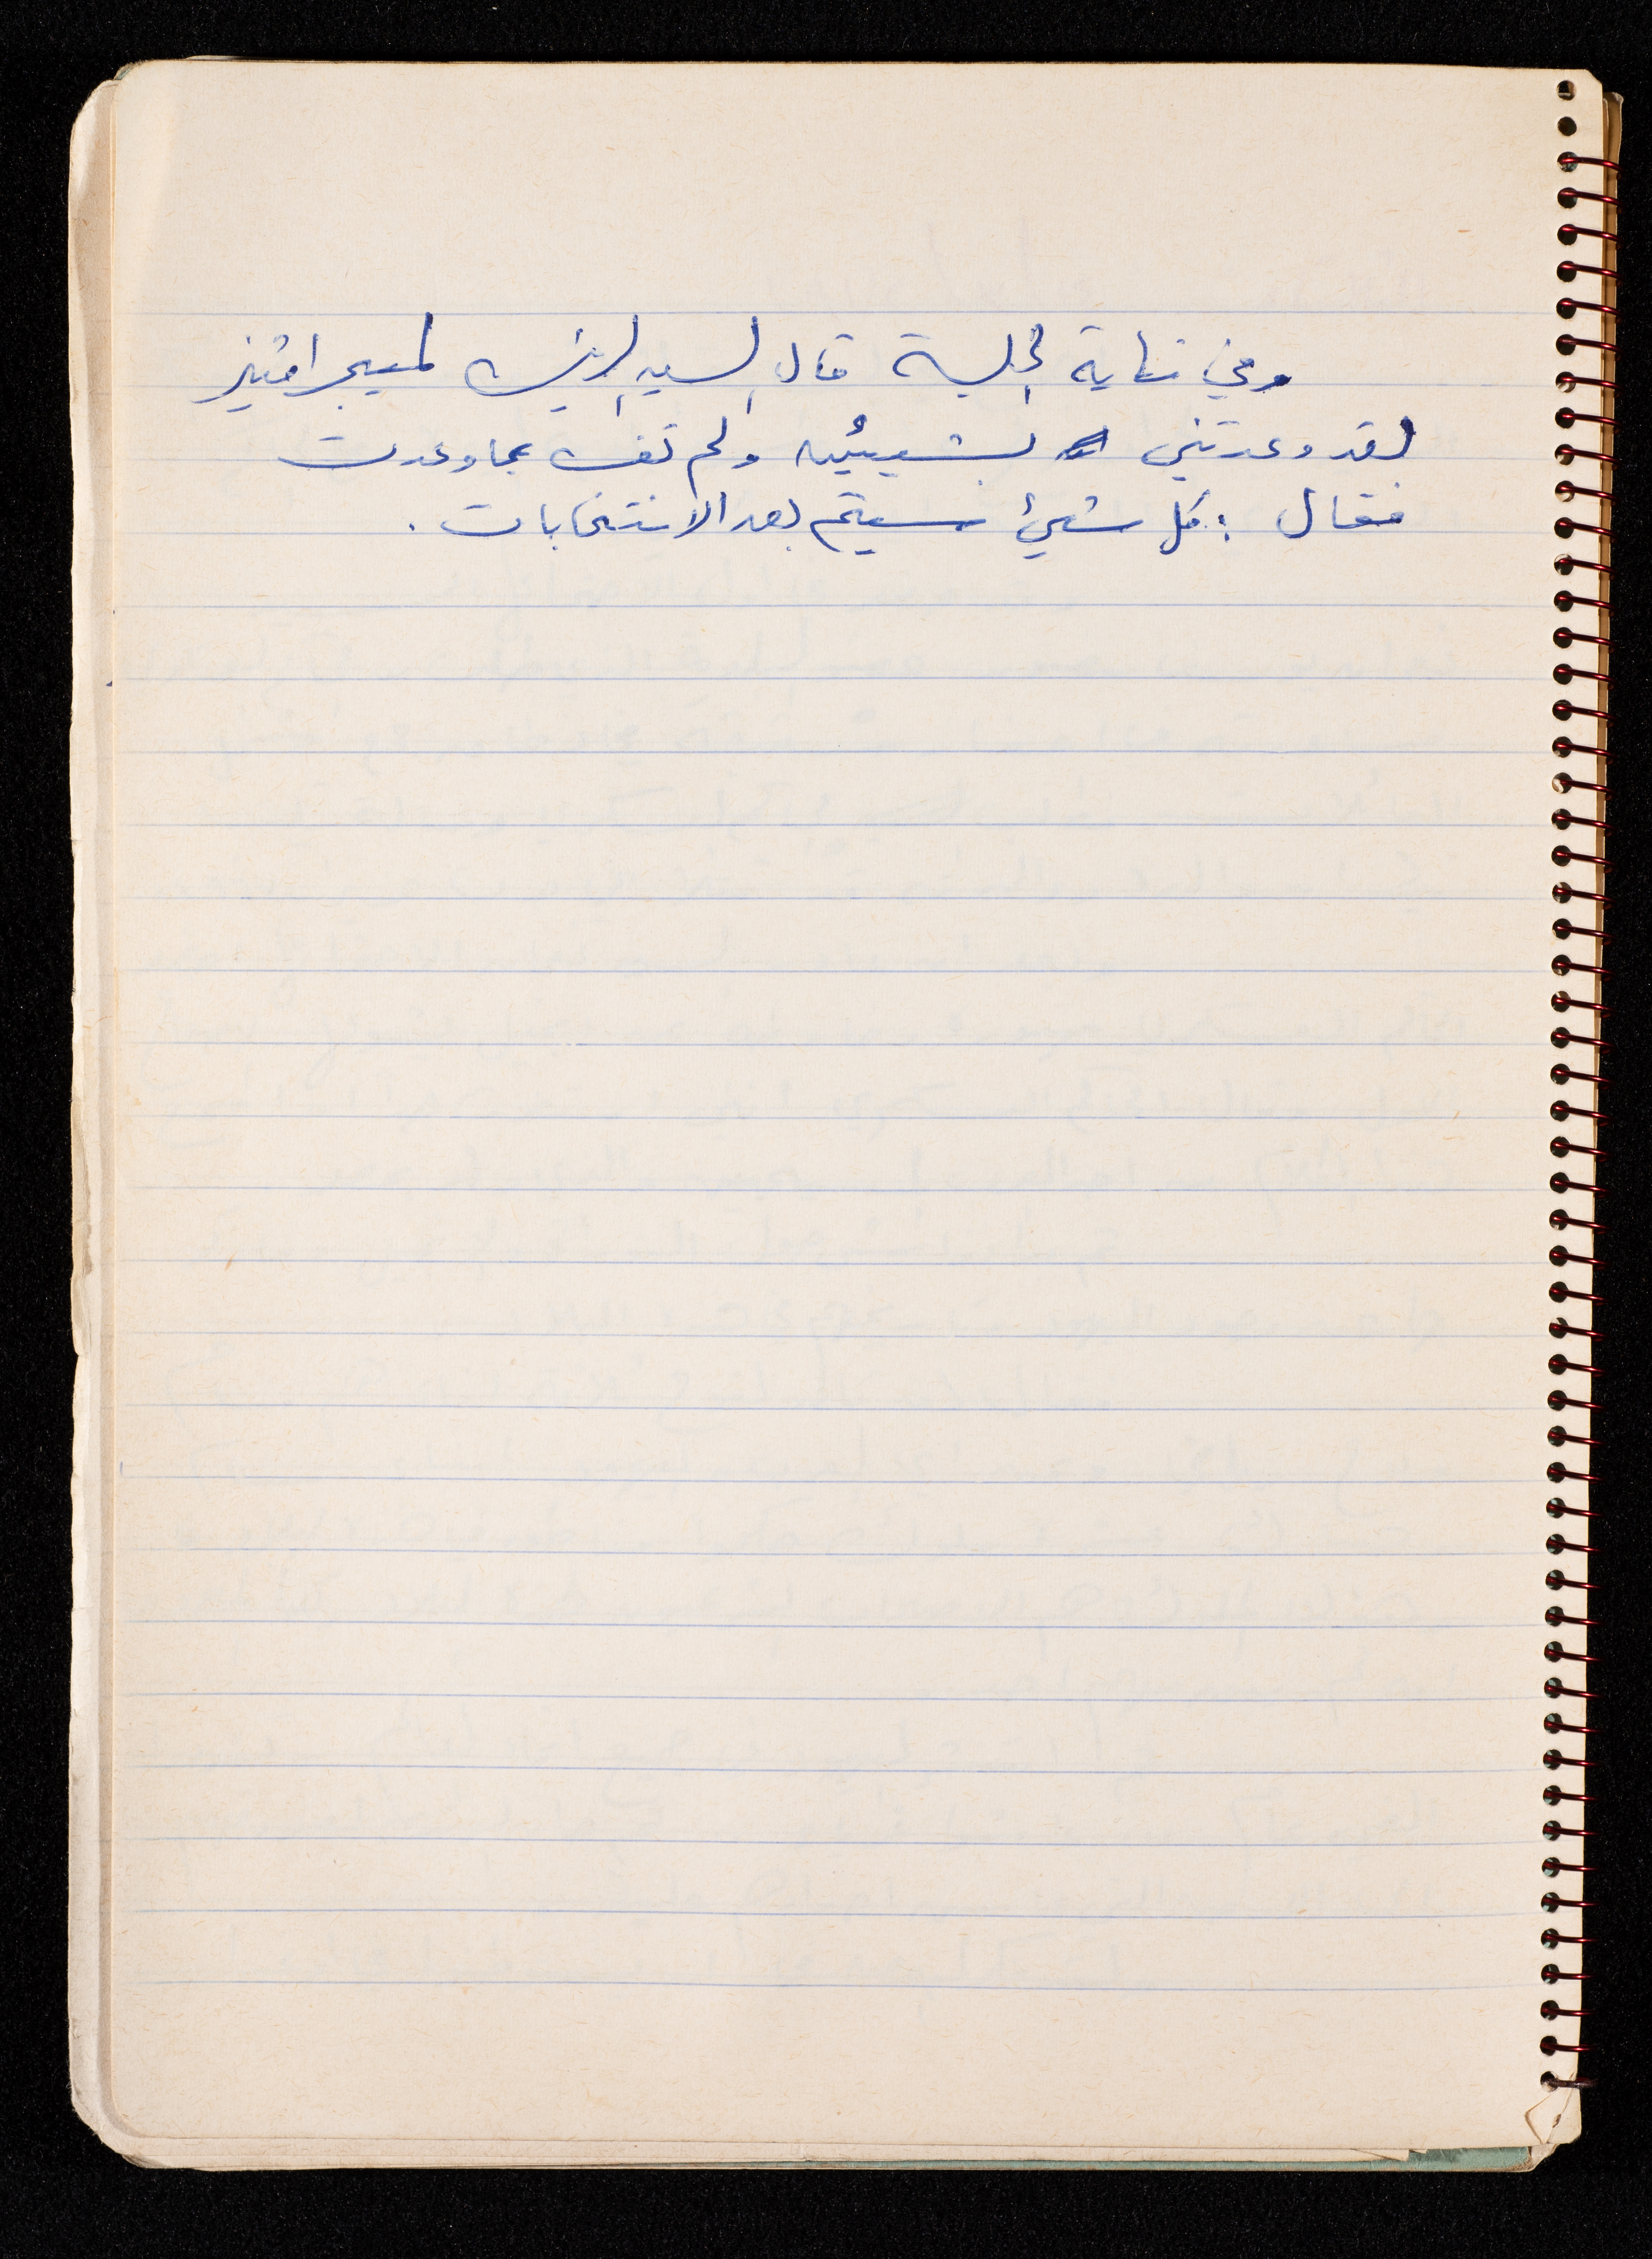 وفي نهاية الجلسة قال السيد الرئيس لميجر افنيز
لقد وعدتني بشيئين ولم تف بما وعدت
فقال : كل شيئ سيتم بعد الانتخابات .